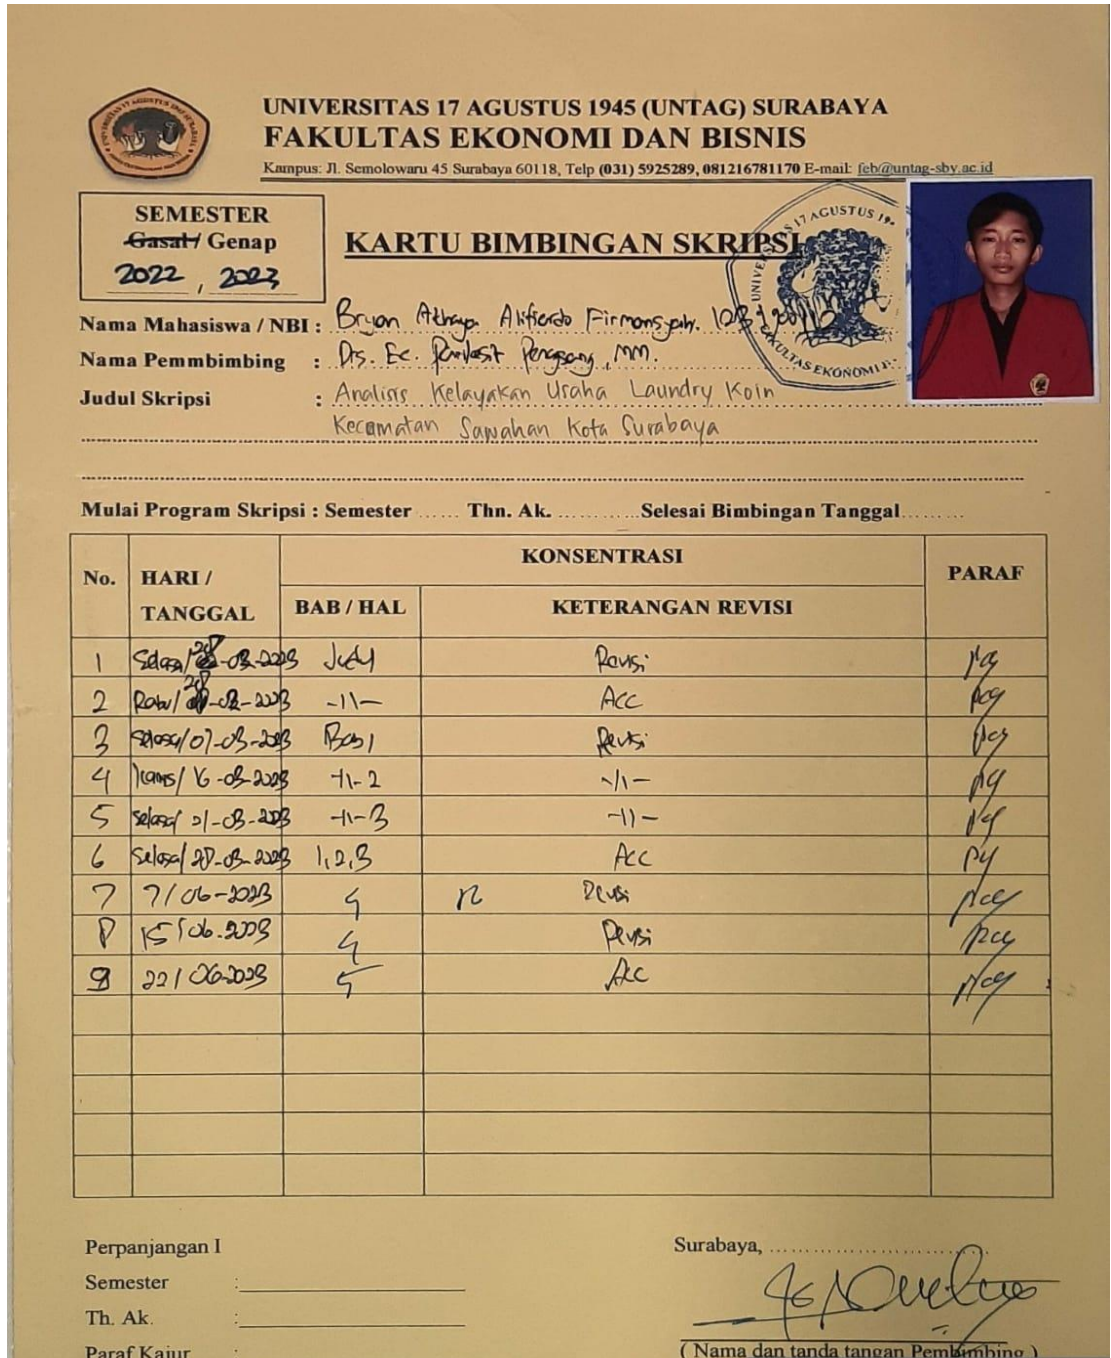 UNIVERSITAS 17 AGUSTUS 1945 (UNTAG) SURABAYA
FAKULTAS EKONOMI DAN BISNIS
Kampus: Jl. Semolowaru 45 Surabaya 60118, Telp (031) 5925289, 081216781170 E-mail: feb@untag-sby.ac.id
SEMESTER
Gasal / Genap
2022 , 2023
KARTU BIMBINGAN SKRIPSI
UNIVERSITAS 17 AGUSTUS 19
FAKULTAS EKONOMI
Nama Mahasiswa / NBI : Bryan Athaya Alifierdo Firmansyah.
Nama Pemmbimbing : Drs. Ec. Pengsang, MM.
Judul Skripsi : Analisis Kelayakan Usaha Laundry Koin
Kecamatan Sawahan Kota Surabaya
Mulai Program Skripsi : Semester ...... Thn. Ak. ............Selesai Bimbingan Tanggal.........
No. HARI / TANGGAL KONSENTRASI PARAF
BAB / HAL KETERANGAN REVISI
1 Selasa/28-02-2023 Judul Revisi
2 Rabu/ -02-2023 -11- Acc
3 Selasa/07-03-2023 Bab 1 Revisi
4 Kamis/ 16-03-2023 -11- 2 -11-
5 Selasa/ 21-03-2023 -11- 3 -11-
6 Selasa/ 28-03-2023 1,2,3 Acc
7 7/06-2023 4 Revisi
8 15/06.2023 4 Revisi
9 22/06-2023 5 Acc
Perpanjangan I
Semester :
Th. Ak. :
Paraf Kajur :
Surabaya, ..............................
( Nama dan tanda tangan Pembimbing )